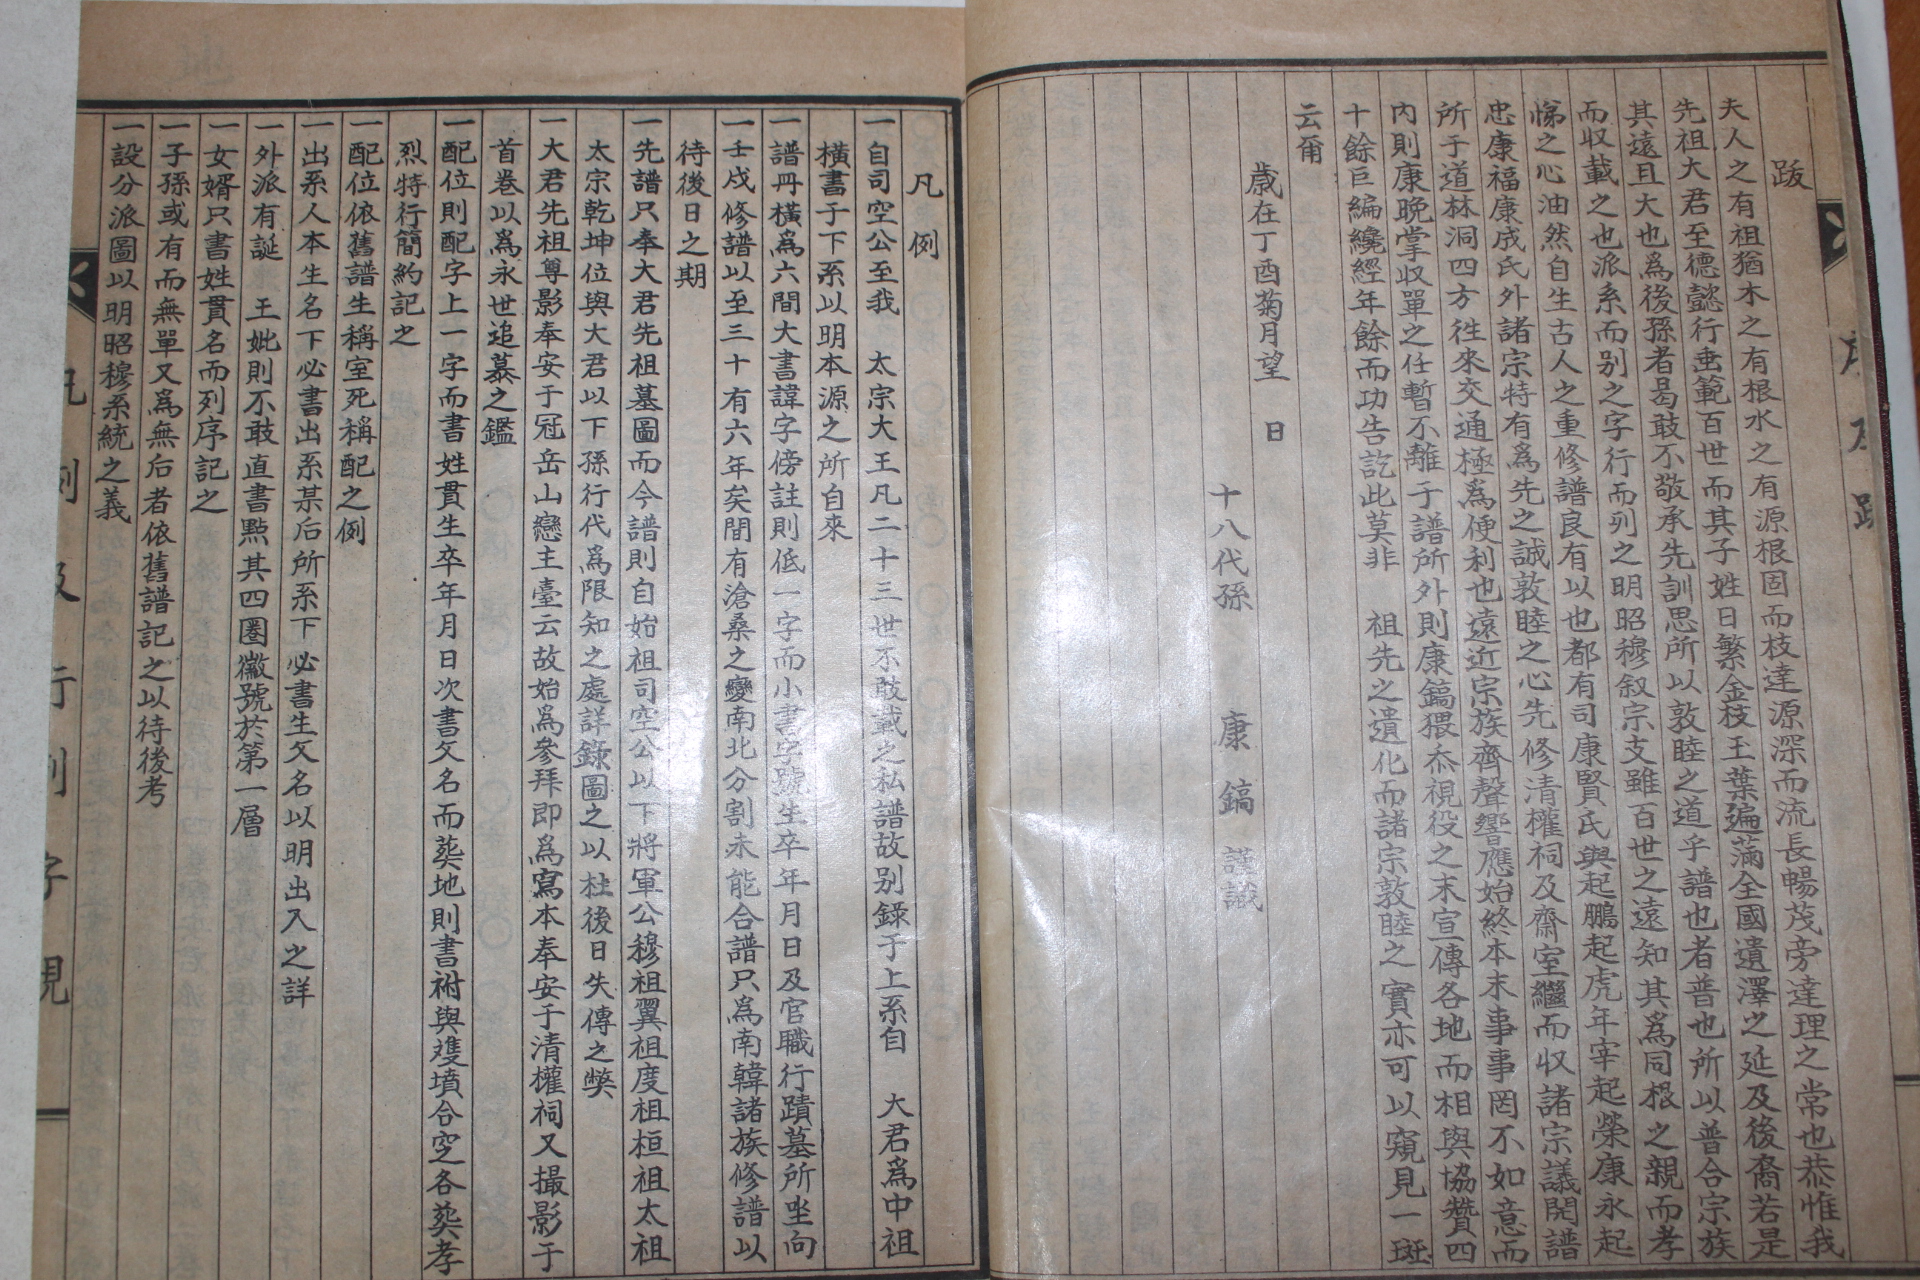 跋
夫人之有祖猶木之有根水之有源根固而枝達源深而流長暢茂旁達理之常也恭惟我
先祖大君至德懿行垂範百世而其子姓日繁金枝玉葉遍滿全國遺澤之延及後裔若是
其遠且大也爲後孫者曷敢不敬承先訓思所以敦睦之道乎譜也者普也所以普合宗族
而收載之也派系而別之字行而列之明昭穆叙宗支雖百世之遠知其爲同根之親而孝
悌之心油然自生古人之重修譜良有以也都有司康賢氏與起鵬起虎年宰起榮康永起
忠康福康成氏外諸宗特有爲先之誠敦睦之心先修清權祠及齋室繼而收諸宗議開譜
所于道林洞四方徃來交通極爲便利也遠近宗族齊聲響應始終本末事事罔不如意而
內則康晩掌收單之任暫不離于譜所外則康鎬猥忝視役之末宣傳各地而相與協贊四
十餘巨編纔經年餘而功告訖此莫非　祖先之遺化而諸宗敦睦之實亦可以窺見一斑
云爾
歲在丁酉菊月望　日
十八代孫　康鎬　謹識
凡例
一自司空公至我　太宗大王凡二十三世不敢載之私譜故别錄于上系自　大君爲中祖
橫書于下系以明本源之所自來
一譜冊橫爲六間大書諱字傍註則低一字而小書字號生卒年月日及官職行蹟墓所坐向
一壬戌修譜以至三十有六年矣間有滄桑之變南北分割未能合譜只爲南韓諸族修譜以
待後日之期
一先譜只奉大君先祖墓圖而今譜則自始祖司空公以下將軍公穆祖翼祖度祖桓祖太祖
太宗乾坤位與大君以下孫行代爲限知之處詳錄圖之以杜後日失傳之獘
一大君先祖尊影奉安于冠岳山戀主臺云故始爲參拜即爲寫本奉安于清權祠又撮影于
首卷以爲永世追慕之鑑
一配位則配字上一字而書姓貫生卒年月日次書父名而葬地則書祔與雙墳合窆各葬孝
烈特行簡約記之
一配位依舊譜生稱室死稱配之例
一出系人本生名下必書出系某后所系下必書生父名以明出入之詳
一外派有誕　王妣則不敢直書點其四圈徽號於第一層
一女婿只書姓貫名而列序記之
一子孫或有而無單又爲無后者依舊譜記之以待後考
一設分派圖以明昭穆系統之義